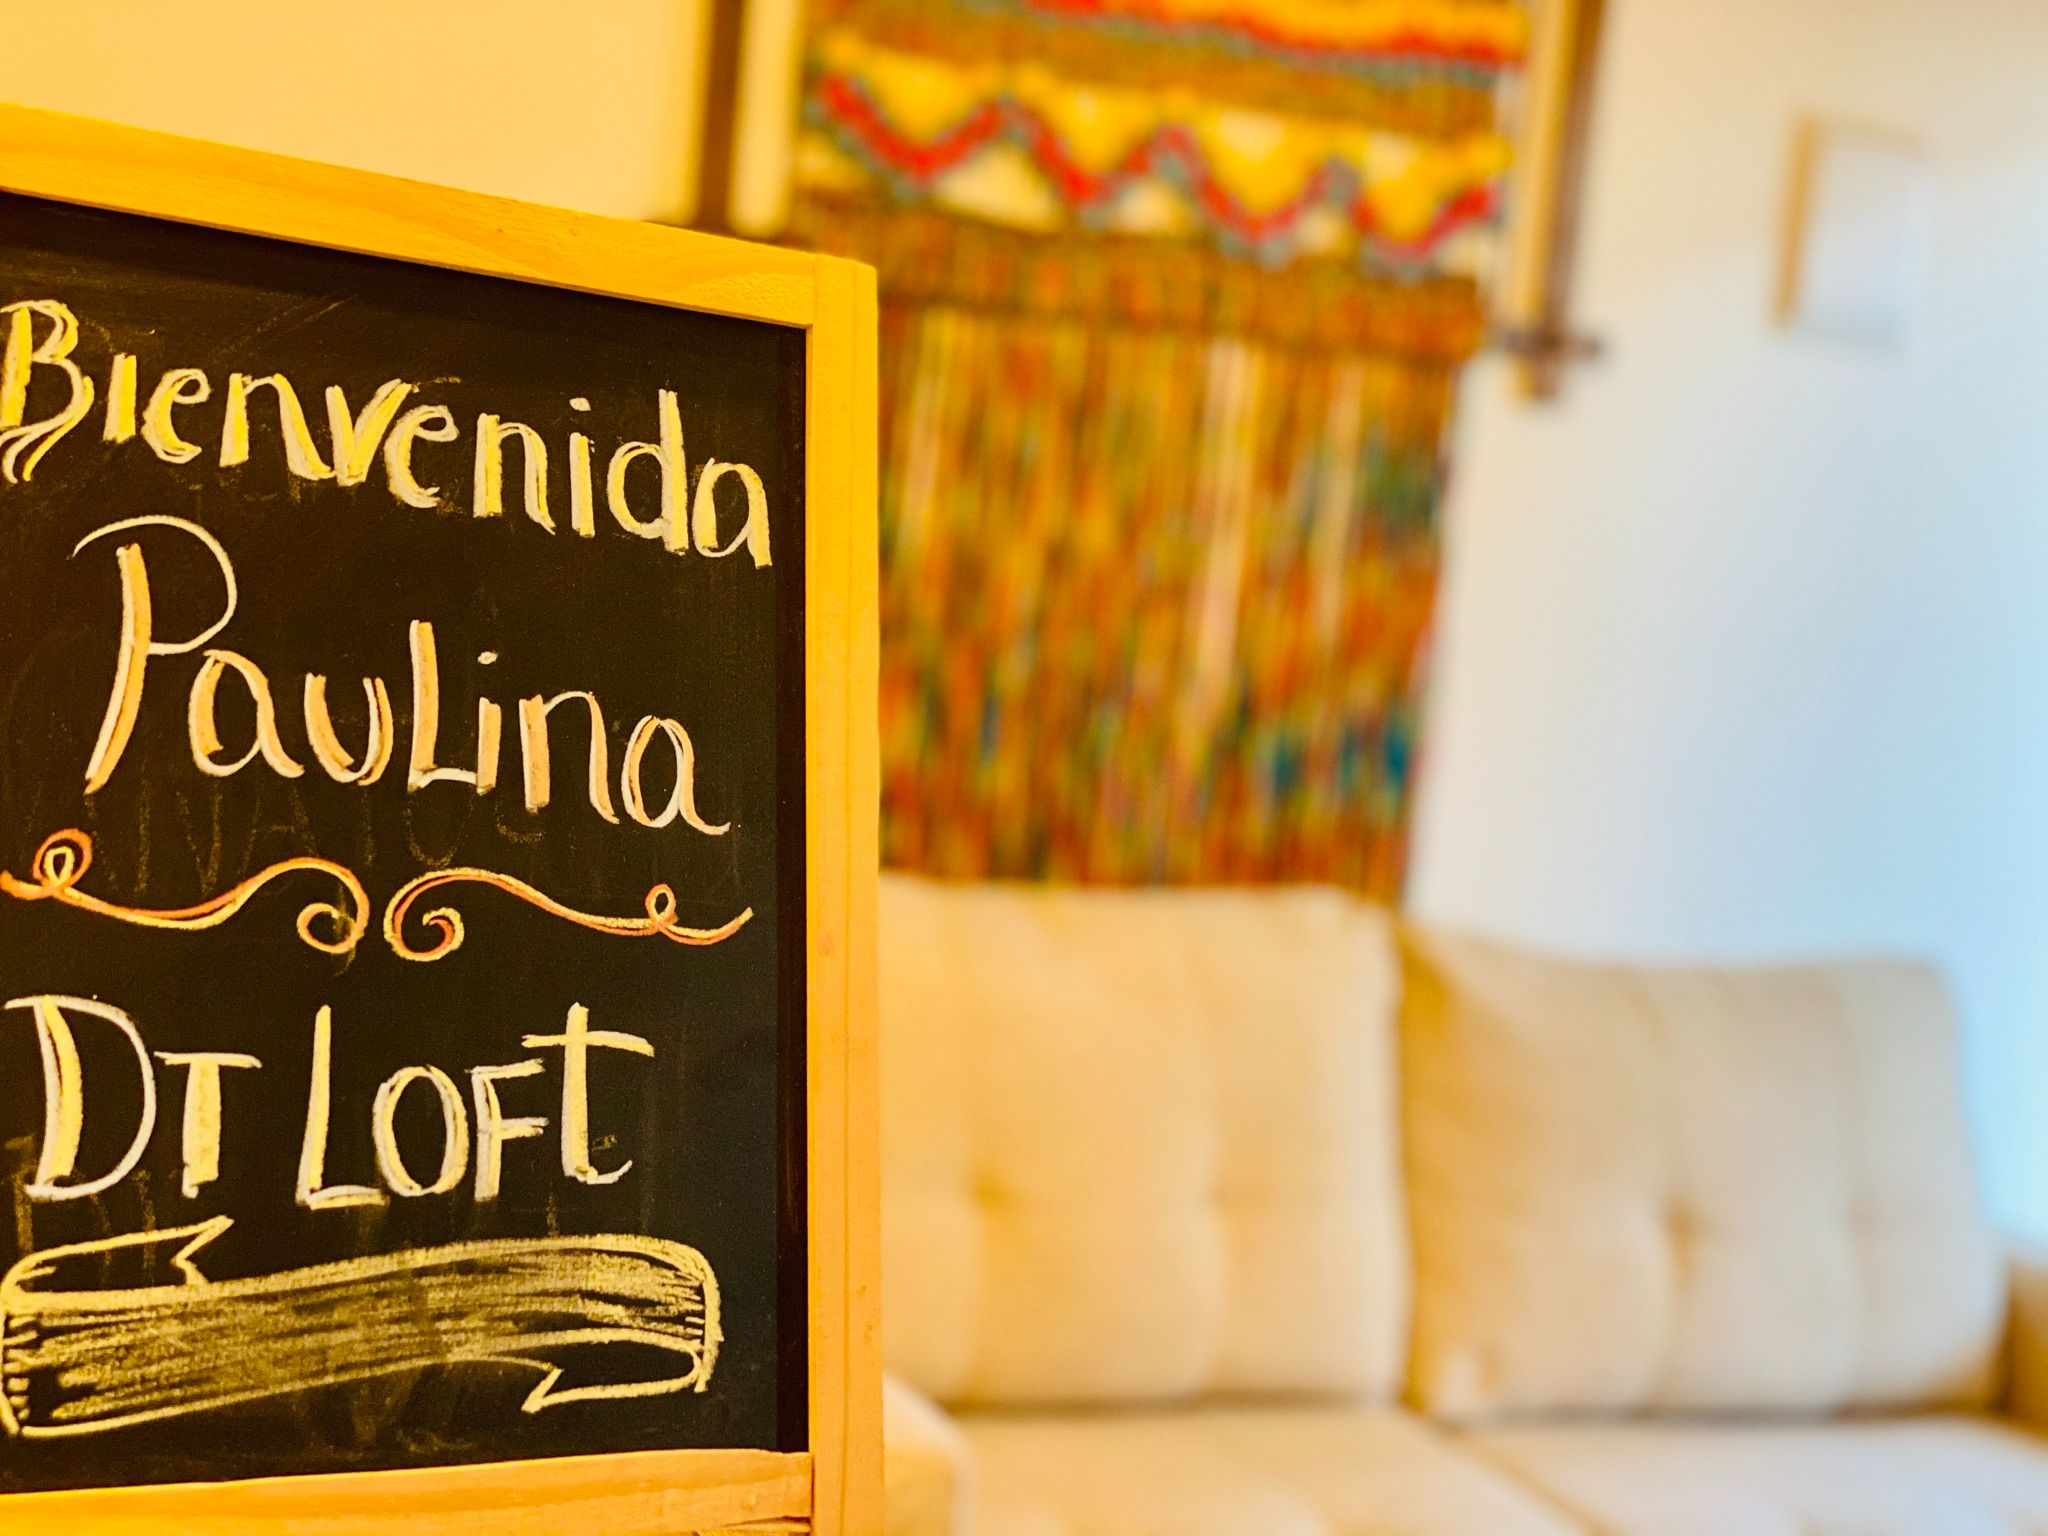 Bienvenida
Paulina
DT LOFt